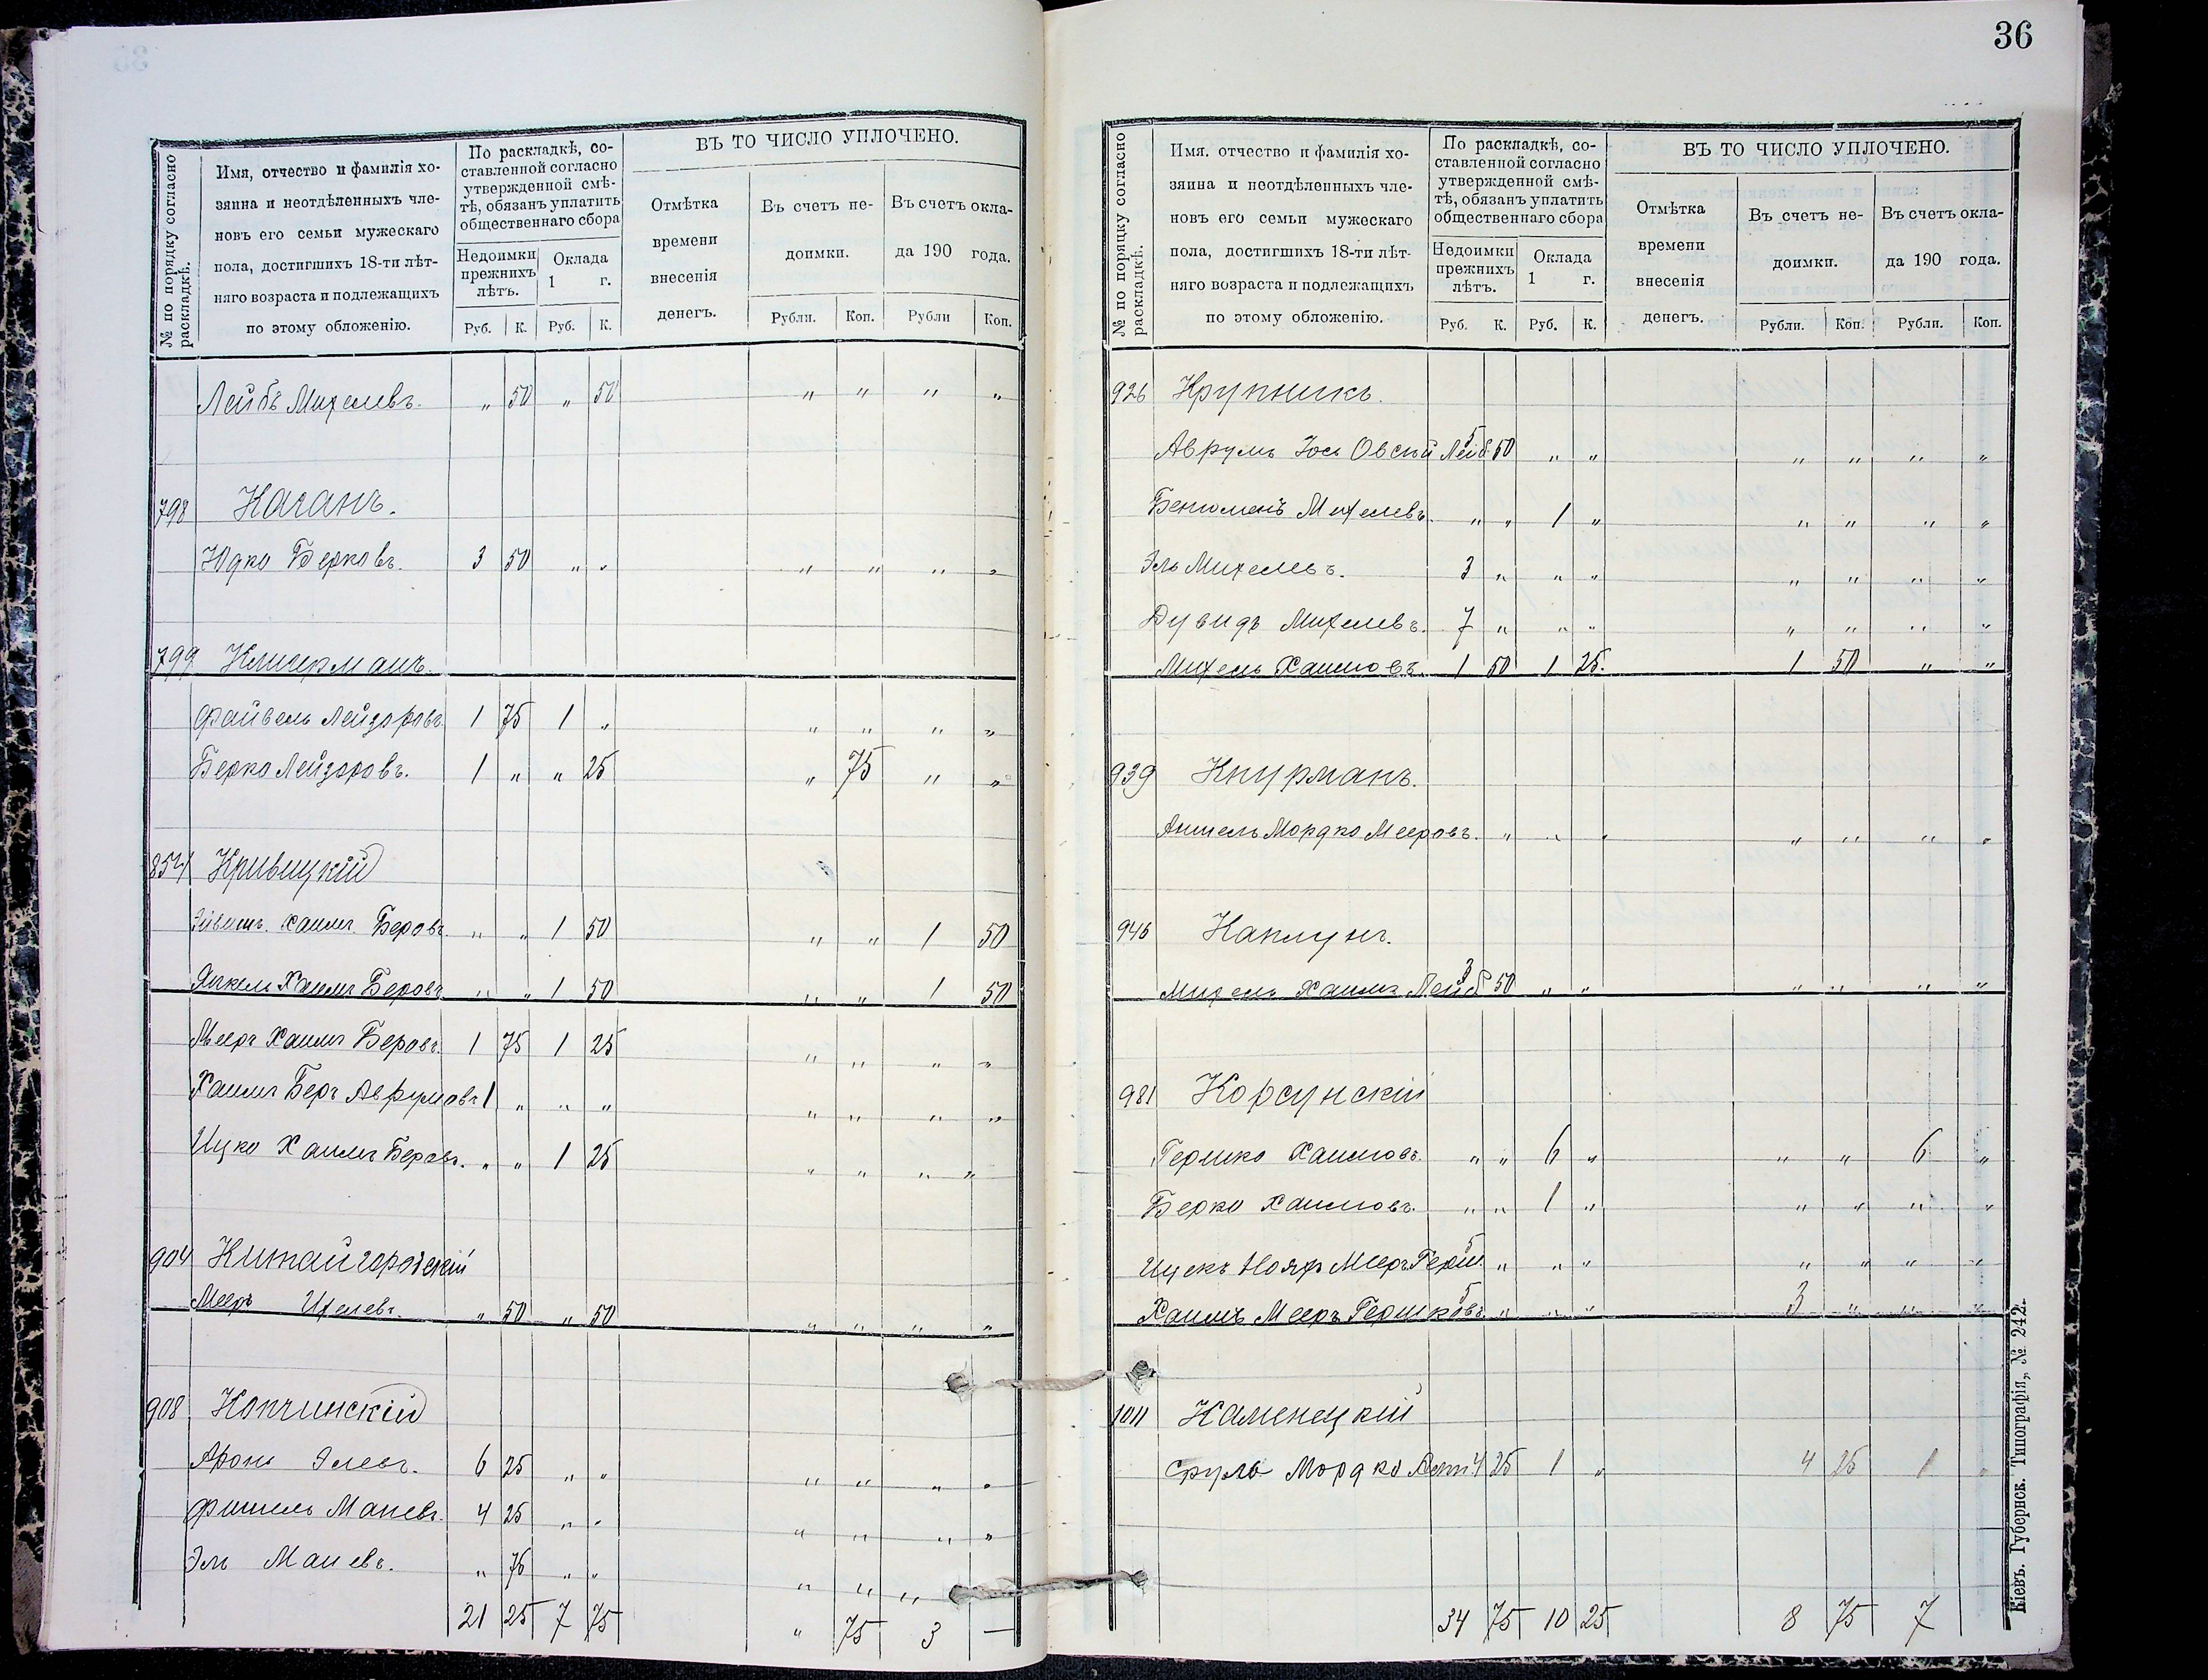 36
№ по порядку согласно раскладкѣ.
Имя, отчество и фамилія хо-
зяина и неотдѣленныхъ чле-
новъ его семьи мужескаго
пола, достигшихъ 18-ти лѣт-
няго возраста и подлежащихъ
по этому обложенію.
По раскладкѣ, со-
ставленной согласно
утвержденной смѣ-
тѣ, обязанъ уплатить
общественнаго сбора
Недоимки прежнихъ лѣтъ.
Оклада 1 г.
Руб. К. Руб. К.
ВЪ ТО ЧИСЛО УПЛОЧЕНО.
Отмѣтка времени внесенія денегъ.
Въ счетъ не- доимки.
Въ счетъ окла- да 190 года.
Рубли. Коп. Рубли Коп.
Лейбъ Михелевъ. " 50 " 50 " " " "
798 Каганъ.
Юдко Берковъ. 3 50 " " " " " "
799 Клигерманъ.
Файвель Лейзоровъ 1 75 1 " " " " "
Берко Лейзоровъ. 1 " " 25 " 75 " "
854 Кривицкій
Хаимъ Беровъ " " 1 50 " " 1 50
Янкель Хаимъ Беровъ " " 1 50 " " 1 50
Мееръ Хаимъ Беровъ. 1 75 1 25 " " " "
Хаимъ Беръ Аврумовъ 1 " " " " " " "
Ицко Хаимъ Беровъ. " " 1 25 " " " "
904 Китайгородскій
Мееръ Ихелевъ. " 50 " 50 " " " "
908 Копчинскій
Аронъ Элевъ. 6 25 " " " " " "
Фишель Маневъ. 4 25 " " " " " "
Эль Маневъ. " 75 " " " " "
21 25 7 75 " 75 3 —
№ по порядку согласно раскладкѣ.
Имя, отчество и фамилія хо-
зяина и неотдѣленныхъ чле-
новъ его семьи мужескаго
пола, достигшихъ 18-ти лѣт-
няго возраста и подлежащихъ
по этому обложенію.
По раскладкѣ, со-
ставленной согласно
утвержденной смѣ-
тѣ, обязанъ уплатить
общественнаго сбора
Недоимки прежнихъ лѣтъ.
Оклада 1 г.
Руб. К. Руб. К.
ВЪ ТО ЧИСЛО УПЛОЧЕНО.
Отмѣтка времени внесенія денегъ.
Въ счетъ не- доимки.
Въ счетъ окла- да 190 года.
Рубли. Коп. Рубли. Коп.
926 Крупникъ.
Аврумъ Іось Овсій Лейб 5 50 " " " " " "
Бенюменъ Михелевъ. " " 1 " " " " "
Эль Михелевъ. 3 " " " " " " "
Дувидъ Михелевъ. 7 " " " " " " "
Михель Хаимовъ. 1 50 1 25. 1 50 " "
939 Кнурманъ.
Аншель Мордко Мееровъ. " " " " " " "
946 Каплунъ.
Михель Хаимъ Лейб 3 50 " " " " " "
981 Корсунскій
Гершко Хаимовъ. " " 6 " " " 6 "
Берко Хаимовъ. " " 1 " " " " "
Ицекъ Нояхъ Мееръ Герш. 5 " " " " " " "
Хаимъ Мееръ Гершковъ 5 " " " 3 " " "
1011 Каменецкій
Сруль Мордко 4 25 1 " 4 25 1 "
34 75 10 25 8 75 7
Кіевъ. Губернск. Типографія, № 242.